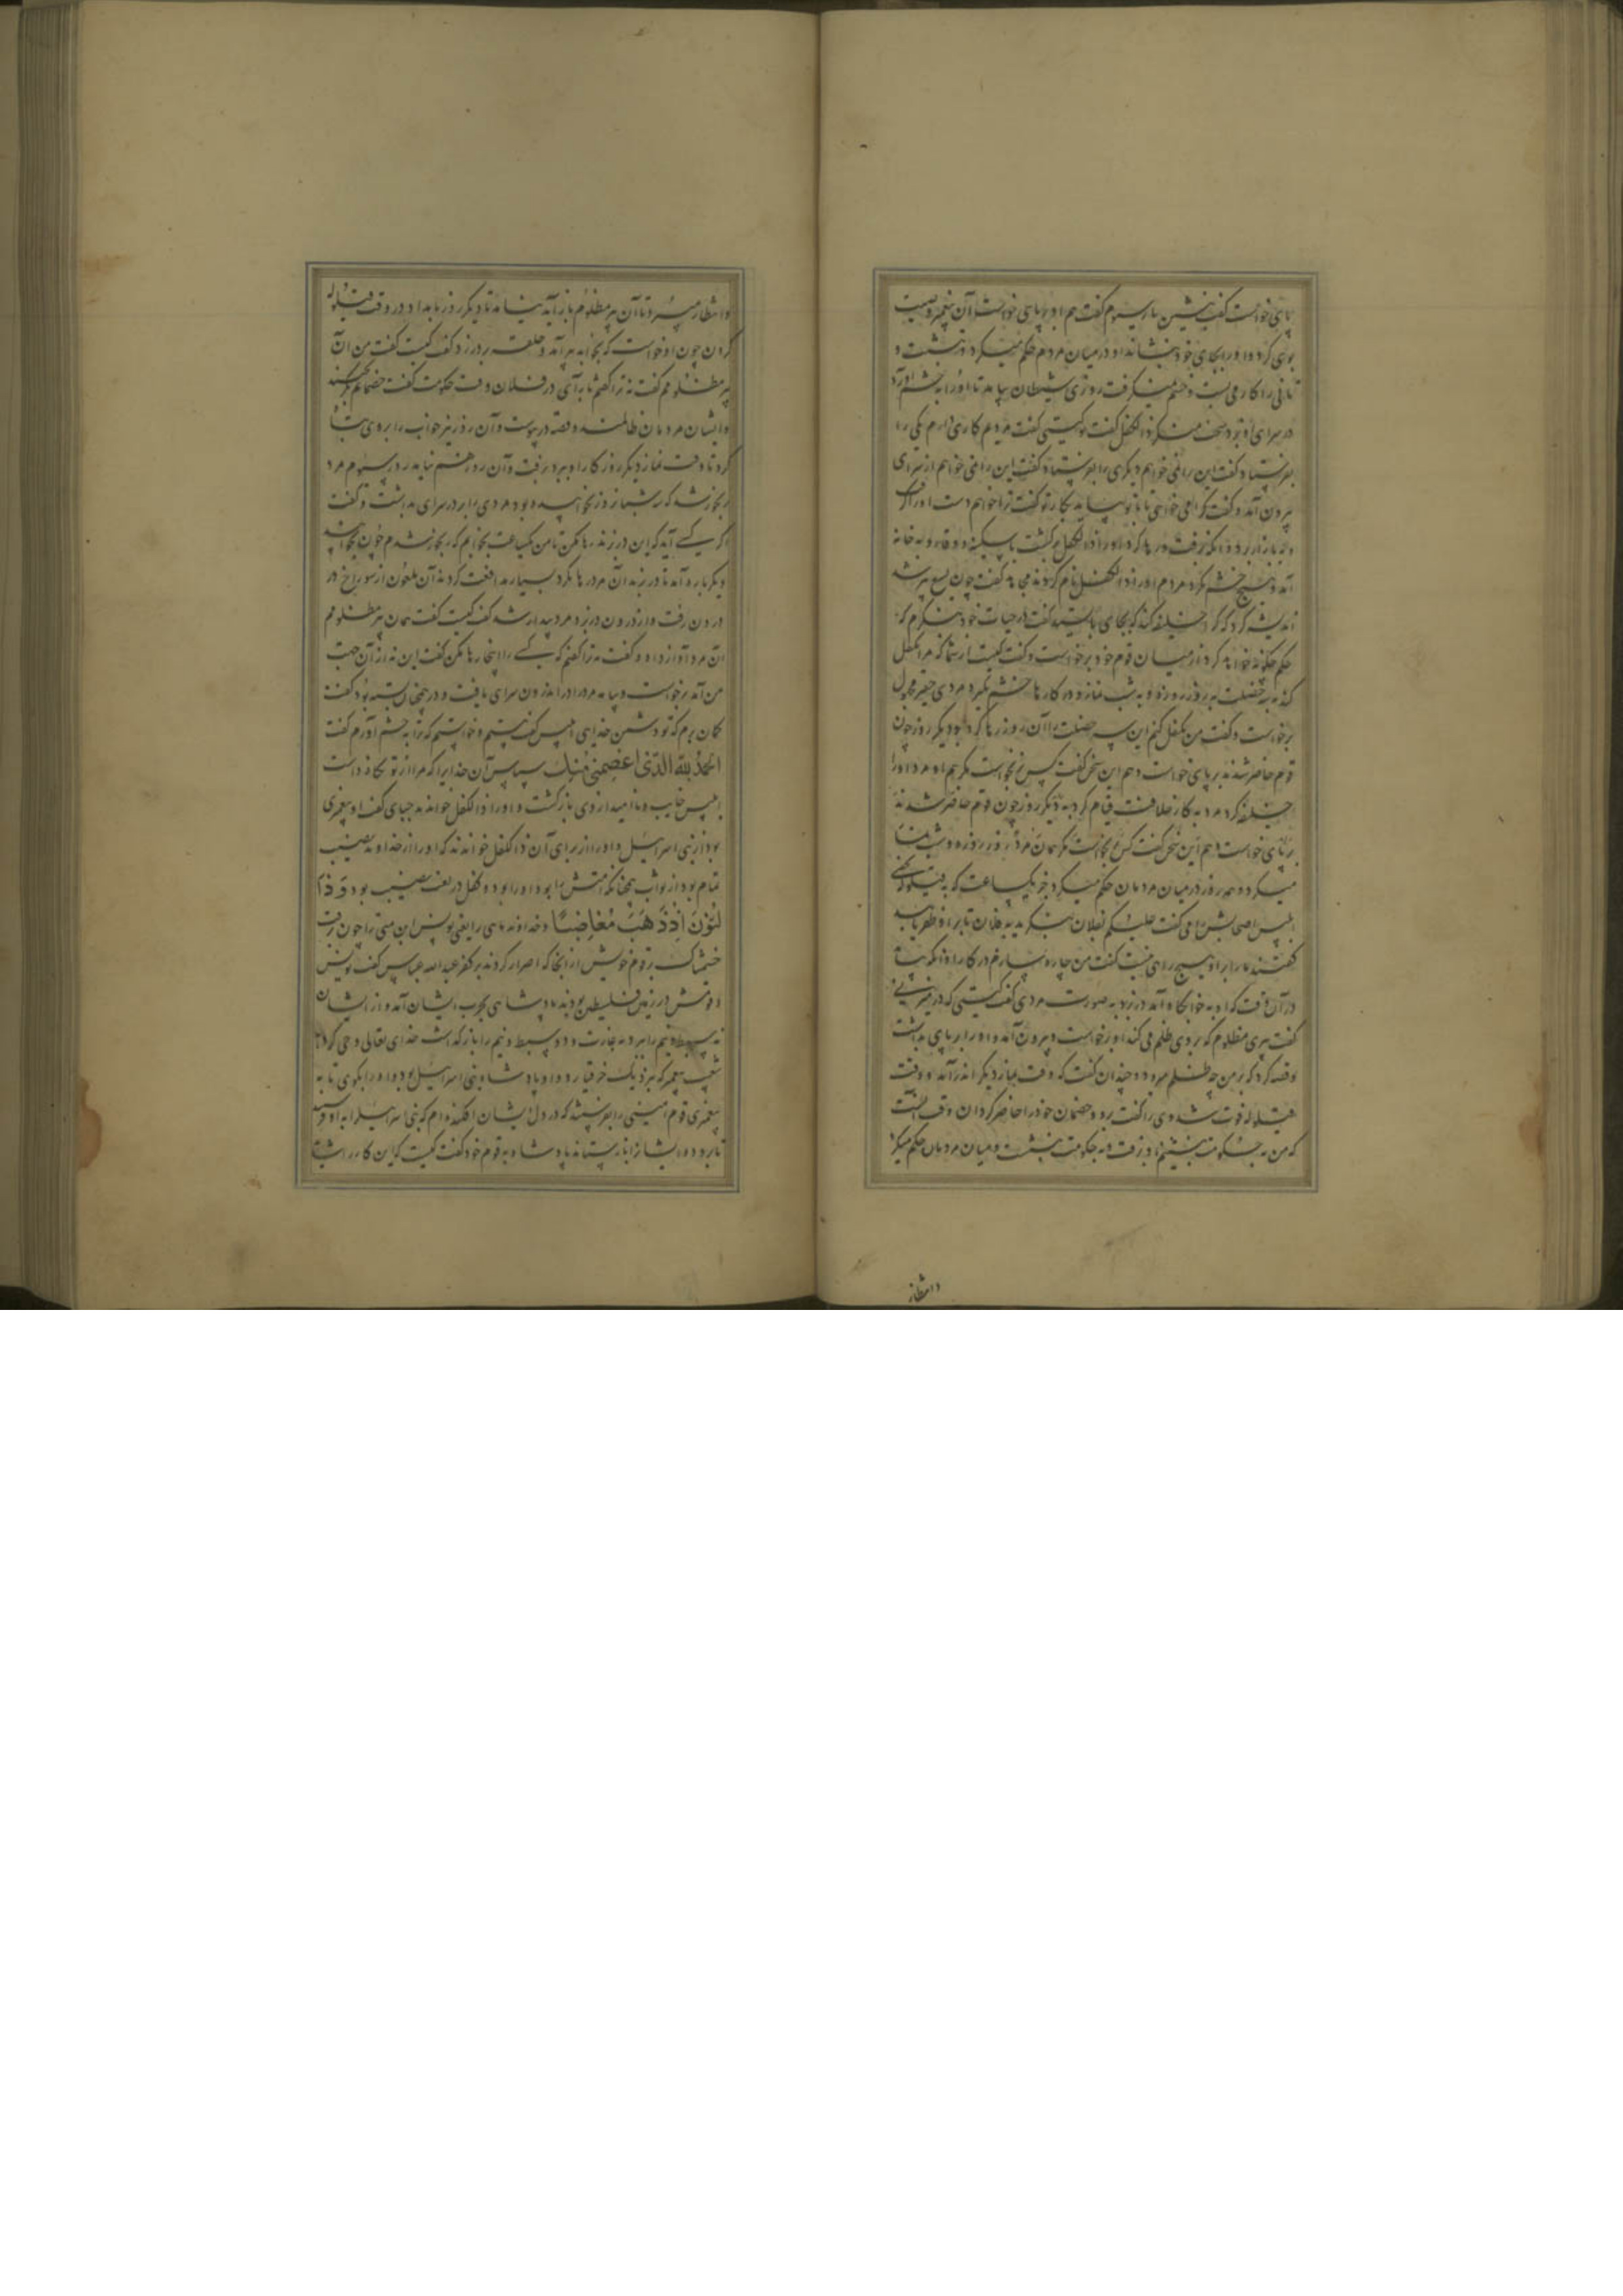 پای خواست گفت بنشین بار سیوم گفت هم او بر پای خواست آن پیغمبر وصیت
بوی کرد و او را بجای خود بنشاند او در میان مردم حکم میکرد و بنشست و
تا نی را کار می بست و خشم نمیگرفت روزی شیطان بیامد تا او را به خشم آرد
در سرای او بزد سخت منکر ذا الکفل گفت کیستی گفت مردم کاری دارم یکی را
بفرستاد گفت این را نمی خواهم دیگری را بفرستاد گفت این را نمی خواهم از سرای
بیرون آمد و گفت کرا می خواهی تا با تو بیاید بکار تو گفت ترا خواهم دست او را گرفت
و به بازار برد و آنگه برفت و رها کرد او را ذا الکفل برگشت با سکینه و وقار و به خانه
آمد و هیچ خشم نکرد مردم او را ذا الکفل نام کردند مجاهد گفت چون یسع پیر شد
اندیشه کرد که کرا خلیفه کند که بجای بایستد گفت در حیات خود بنگرم که
حکم چگونه خواهد کرد از میان قوم خود برخواست و گفت کیست از شما که مرا تکفل
کند به سه خصلت به روز روزه و به شب نماز و در کارها خشم نگیرد مردی حقیر مجهول
برخواست و گفت من تکفل کنم این سه خصلت را آن روز رها کرد و دیگر روز چون
قوم حاضر شدند بر پای خواست و هم این سخن گفت کس برنخواست مگر هم او مرد او را
خلیفه کرد مرد به کار خلافت قیام کرد دیگر روز چون قوم حاضر شدند
بر پای خواست و هم این سخن گفت کس برنخواست مگر همان مرد روز روزه و شب نماز
میکرد و همه روز در میان مردمان حکم میکرد جز یک ساعت که به قیلوله
ابلیس اصحابش را می گفت علیکم بفلان بنگرید به فلان تا بر او ظفر یابید
گفتند ما را بر او هیچ راهی نیست گفت من چاره سازم در کار او آنگه بیامد
در آن وقت که او به خوابگاه آمد در بزد به صورت مردی گفت کیستی که در میزنی
گفت پیری مظلوم که بر وی ظلم می کند او برخواست و بیرون آمد و او را بر پای بداشت
و قصه کرد که بر من چه ظلم میرود و چندان گفت که وقت نماز دیگر اندر آمد و وقت
قیلوله فوت شد وی را گفت برو و خصمان خود را حاضر گردان وقت آنست
که من به حکومت بنشینم او رفت و به حکومت بنشست و میان مردمان حکم میکرد
وانتظار
وانتظار میبرد تا آن پیر مظلوم باز آید نیامد تا دیگر روز بامداد در وقت قیلوله
کردن چون او خواست که بخوابد پیر آمد و حلقه بر در زد گفت کیست گفت من آن
پیر مظلومم گفت نه ترا گفتم تا به آی در فلان وقت حکومت گفت خصمانم
و ایشان مردمان ظالمند و قصه در پیوست و آن روز نیز خواب را بر وی تباه
کرد تا وقت نماز دیگر روز کار او ببرد برفت و آن روز هم نیامد روز سیوم مرد
رنجور شد که سه شبانروز نخوابیده بود مردی را بر در سرای بداشت و گفت
اگر کسی آید که این در زند رها مکن تا من یکساعت بخوابم که رنجور شدم چون بخوابید
دیگر باره آمد تا در بزند آن مرد رها نکرد بسیار مدافعت کردند آن ملعون از سوراخ در
درون رفت و از درون در بزد مرد بیدار شد گفت کیست گفت همان پیر مظلومم
آن مرد آواز داد و گفت نه ترا گفتم که کسی را اینجا رها مکن گفت این نه از آن جهت
من آمد برخواست و بیامد مرد را در اندرون سرای یافت و در همچنان بسته بود گفت
گمان برم که تو دشمن خدایی ابلیس گفت هستم و خواستم که ترا به خشم آورم گفت
اَلْحَمْدُ لِلّٰهِ الَّذی اعْصَمَنی مِنْكَ سپاس آن خدایرا که مرا از تو نگاه داشت
ابلیس خایب و ناامید از وی بازگشت و او را ذا الکفل خواندند جبای گفت او پیغمبری
بود از بنی اسرائیل و او را از برای آن ذا الکفل خواندند که او را از خداوند نصیب
تمام بود از ثواب همچنانکه امتش را بود او را بود و کفل در لغت نصیب بود وَ ذَا
النُّونَ اِذْ ذَهَبَ مُغَاضِبًا و خداوند ماهی را یعنی یونس ابن متی را چون برفت
خشمناک بر قوم خویش از آنجا که اصرار کردند بر کفر عبد الله عباس گفت یونس
و قومش در زمین فلسطین بودند پادشاهی بحرب ایشان آمد و از ایشان
نه سبط و نیم را ببرد به غارت و دو سبط و نیم را باز گذاشت خدای تعالی وحی کرد به
شعیب پیغمبر که نزدیک حزقیا رو و او پادشاه بنی اسرائیل بود و او را بگوی تا به
پیغمبری قوم امینی را بفرستد که در دل ایشان افکنده ام که بنی اسرائیل را به او
تا برود و ایشانرا باز ستاند پادشاه به قوم خود گفت کیست که این کار را شاید